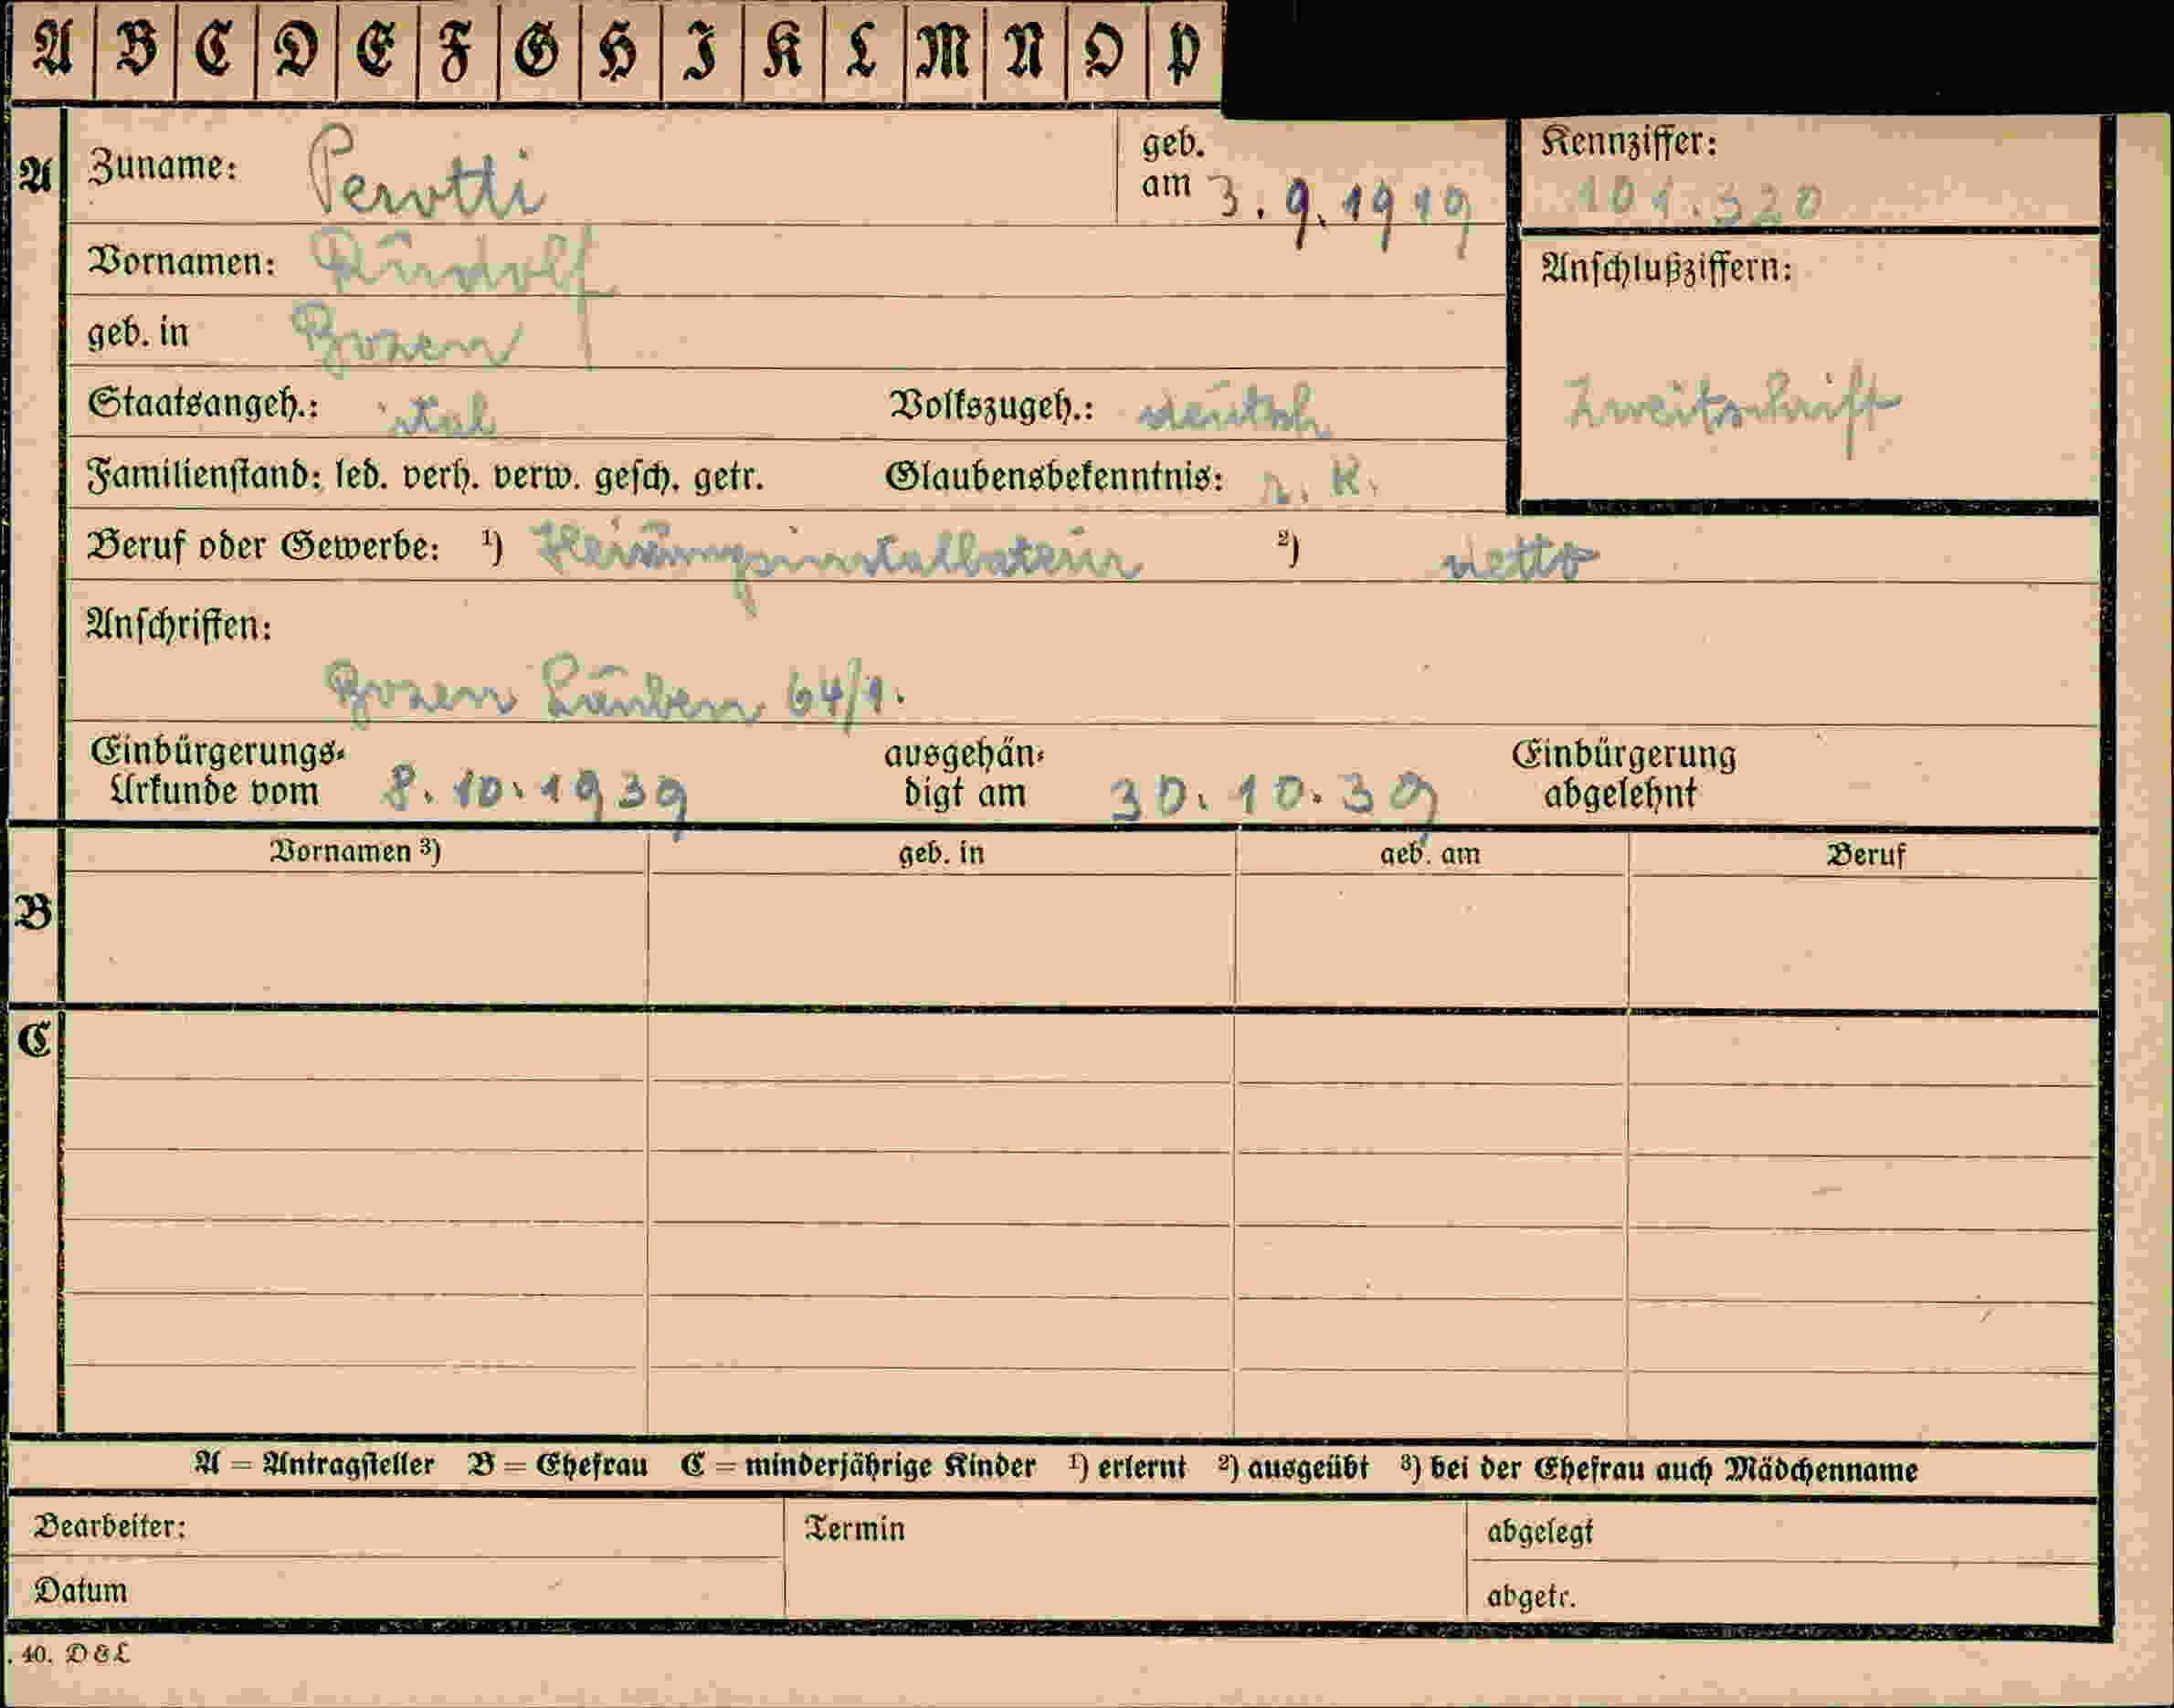 A B C D E F G H I K L M N O P
A Zuname: Perotti geb. am 3.9.1919 Kennziffer: 101.320
Vornamen: Rudolf Anschlußziffern:
geb. in Bozen
Staatsangeh.: ital Volkszugeh.: deutsch Zweitschrift
Familienstand: led. verh. verw. gesch. getr. Glaubensbekenntnis: r. K.
Beruf oder Gewerbe: ¹) ²) detto
Anschriften:
Bozen Lauben 64/1.
Einbürgerungs- Urkunde vom 8.10.1939 ausgehän- digt am 30.10.39 Einbürgerung abgelehnt
Vornamen ³) geb. in geb. am Beruf
B
C
A = Antragsteller B = Ehefrau C = minderjährige Kinder ¹) erlernt ²) ausgeübt ³) bei der Ehefrau auch Mädchenname
Bearbeiter: Termin abgelegt
Datum abgetr.
. 40. D & L